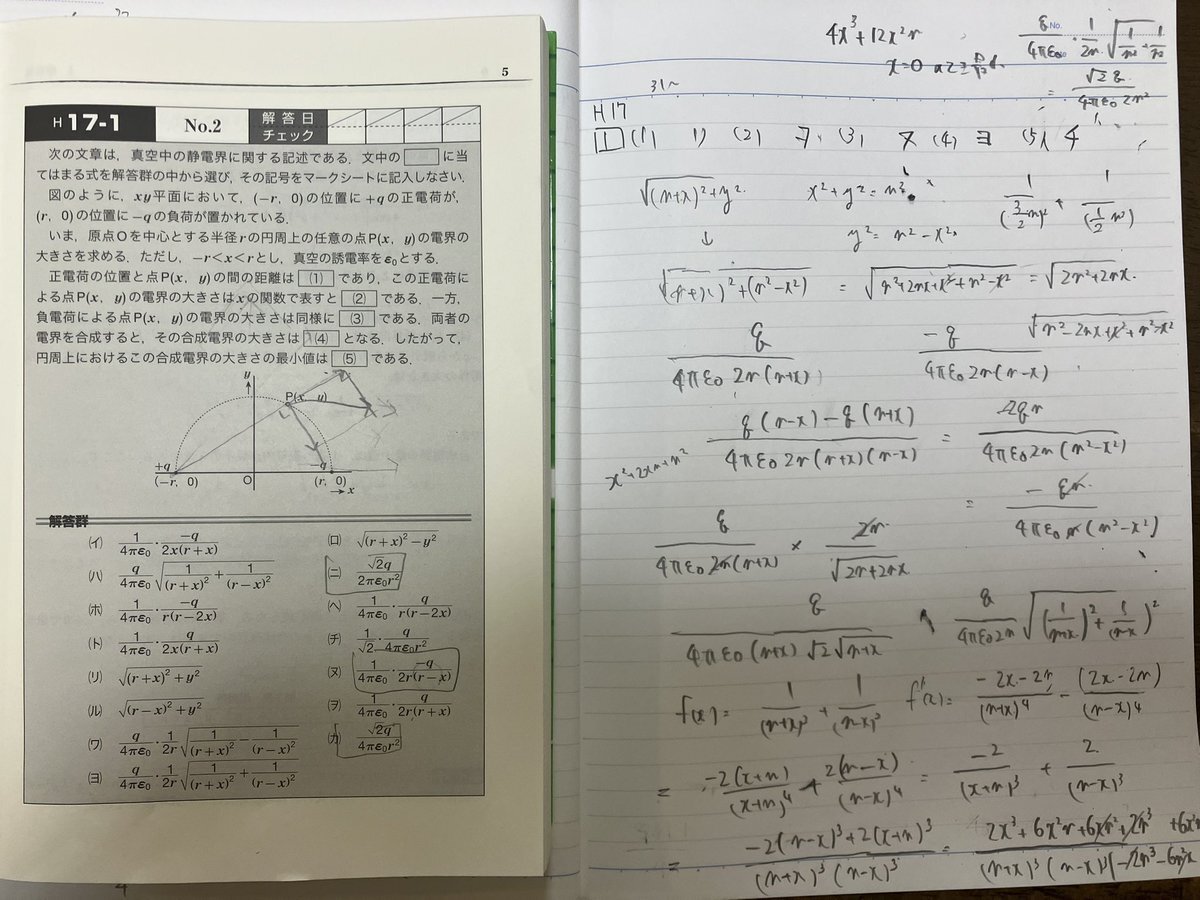 5
H 17-1 No.2 解答日チェック
次の文章は，真空中の静電界に関する記述である．文中の□に当
てはまる式を解答群の中から選び，その記号をマークシートに記入しなさい．
図のように，xy平面において，(−r，0)の位置に+qの正電荷が，
(r，0)の位置に−qの負荷が置かれている．
いま，原点Oを中心とする半径rの円周上の任意の点P(x，y)の電界の
大きさを求める．ただし，−r<x<rとし，真空の誘電率をε₀とする．
正電荷の位置と点P(x，y)の間の距離は(1)であり，この正電荷
による点P(x，y)の電界の大きさはxの関数で表すと(2)である．一方，
負電荷による点P(x，y)の電界の大きさは同様に(3)である．両者の
電界を合成すると，その合成電界の大きさは(4)となる．したがって，
円周上におけるこの合成電界の大きさの最小値は(5)である．
y
P(x，y)
+q
(−r，0)
O
−q
(r，0)
x
解答群
(イ) 1/4πε₀・−q/2x(r+x)
(ロ) √(r+x)²−y²
(ハ) q/4πε₀ √1/(r+x)²+1/(r−x)²
(ニ) √2q/2πε₀r²
(ホ) 1/4πε₀・−q/r(r−2x)
(ヘ) 1/4πε₀・q/r(r−2x)
(ト) 1/4πε₀・q/2x(r+x)
(チ) 1/√2・q/4πε₀r²
(リ) √(r+x)²+y²
(ヌ) 1/4πε₀・−q/2r(r−x)
(ル) √(r−x)²+y²
(ヲ) 1/4πε₀・q/2r(r+x)
(ワ) q/4πε₀・1/2r √1/(r+x)²−1/(r−x)²
(カ) √2q/4πε₀r²
(ヨ) q/4πε₀・1/2r √1/(r+x)²+1/(r−x)²
4x³+12x²r
x=0
= √2q/4πε₀2r²
31~
H17
1 (1) リ (2) ヲ (3) ヌ (4) ヨ (5) チ
√(r+x)²+y²
x²+y²=r²
↓
y²=r²−x²
= √r²+2rx+x²+r²−x² = √2r²+2rx
√r²−2rx+x²+r²−x²
q/4πε₀2r(r+x)
−q/4πε₀2r(r−x)
q(r−x)−q(r+x)/4πε₀2r(r+x)(r−x)
x²+2xr+r²
q/4πε₀2r(r+x) × 2r/√2r+2rx
q/4πε₀(r+x)√2√r+x
q/4πε₀2r √(1/r+x)²+(1/r−x)²
f(x)= 1/(r+x)² + 1/(r−x)²
f'(x)= −2x−2r/(r+x)⁴ − (2x−2r)/(r−x)⁴
= −2(x+r)/(x+r)⁴ + 2(r−x)/(r−x)⁴ = −2/(x+r)³ + 2/(r−x)³
= −2(r−x)³+2(x+r)³/(r+x)³(r−x)³